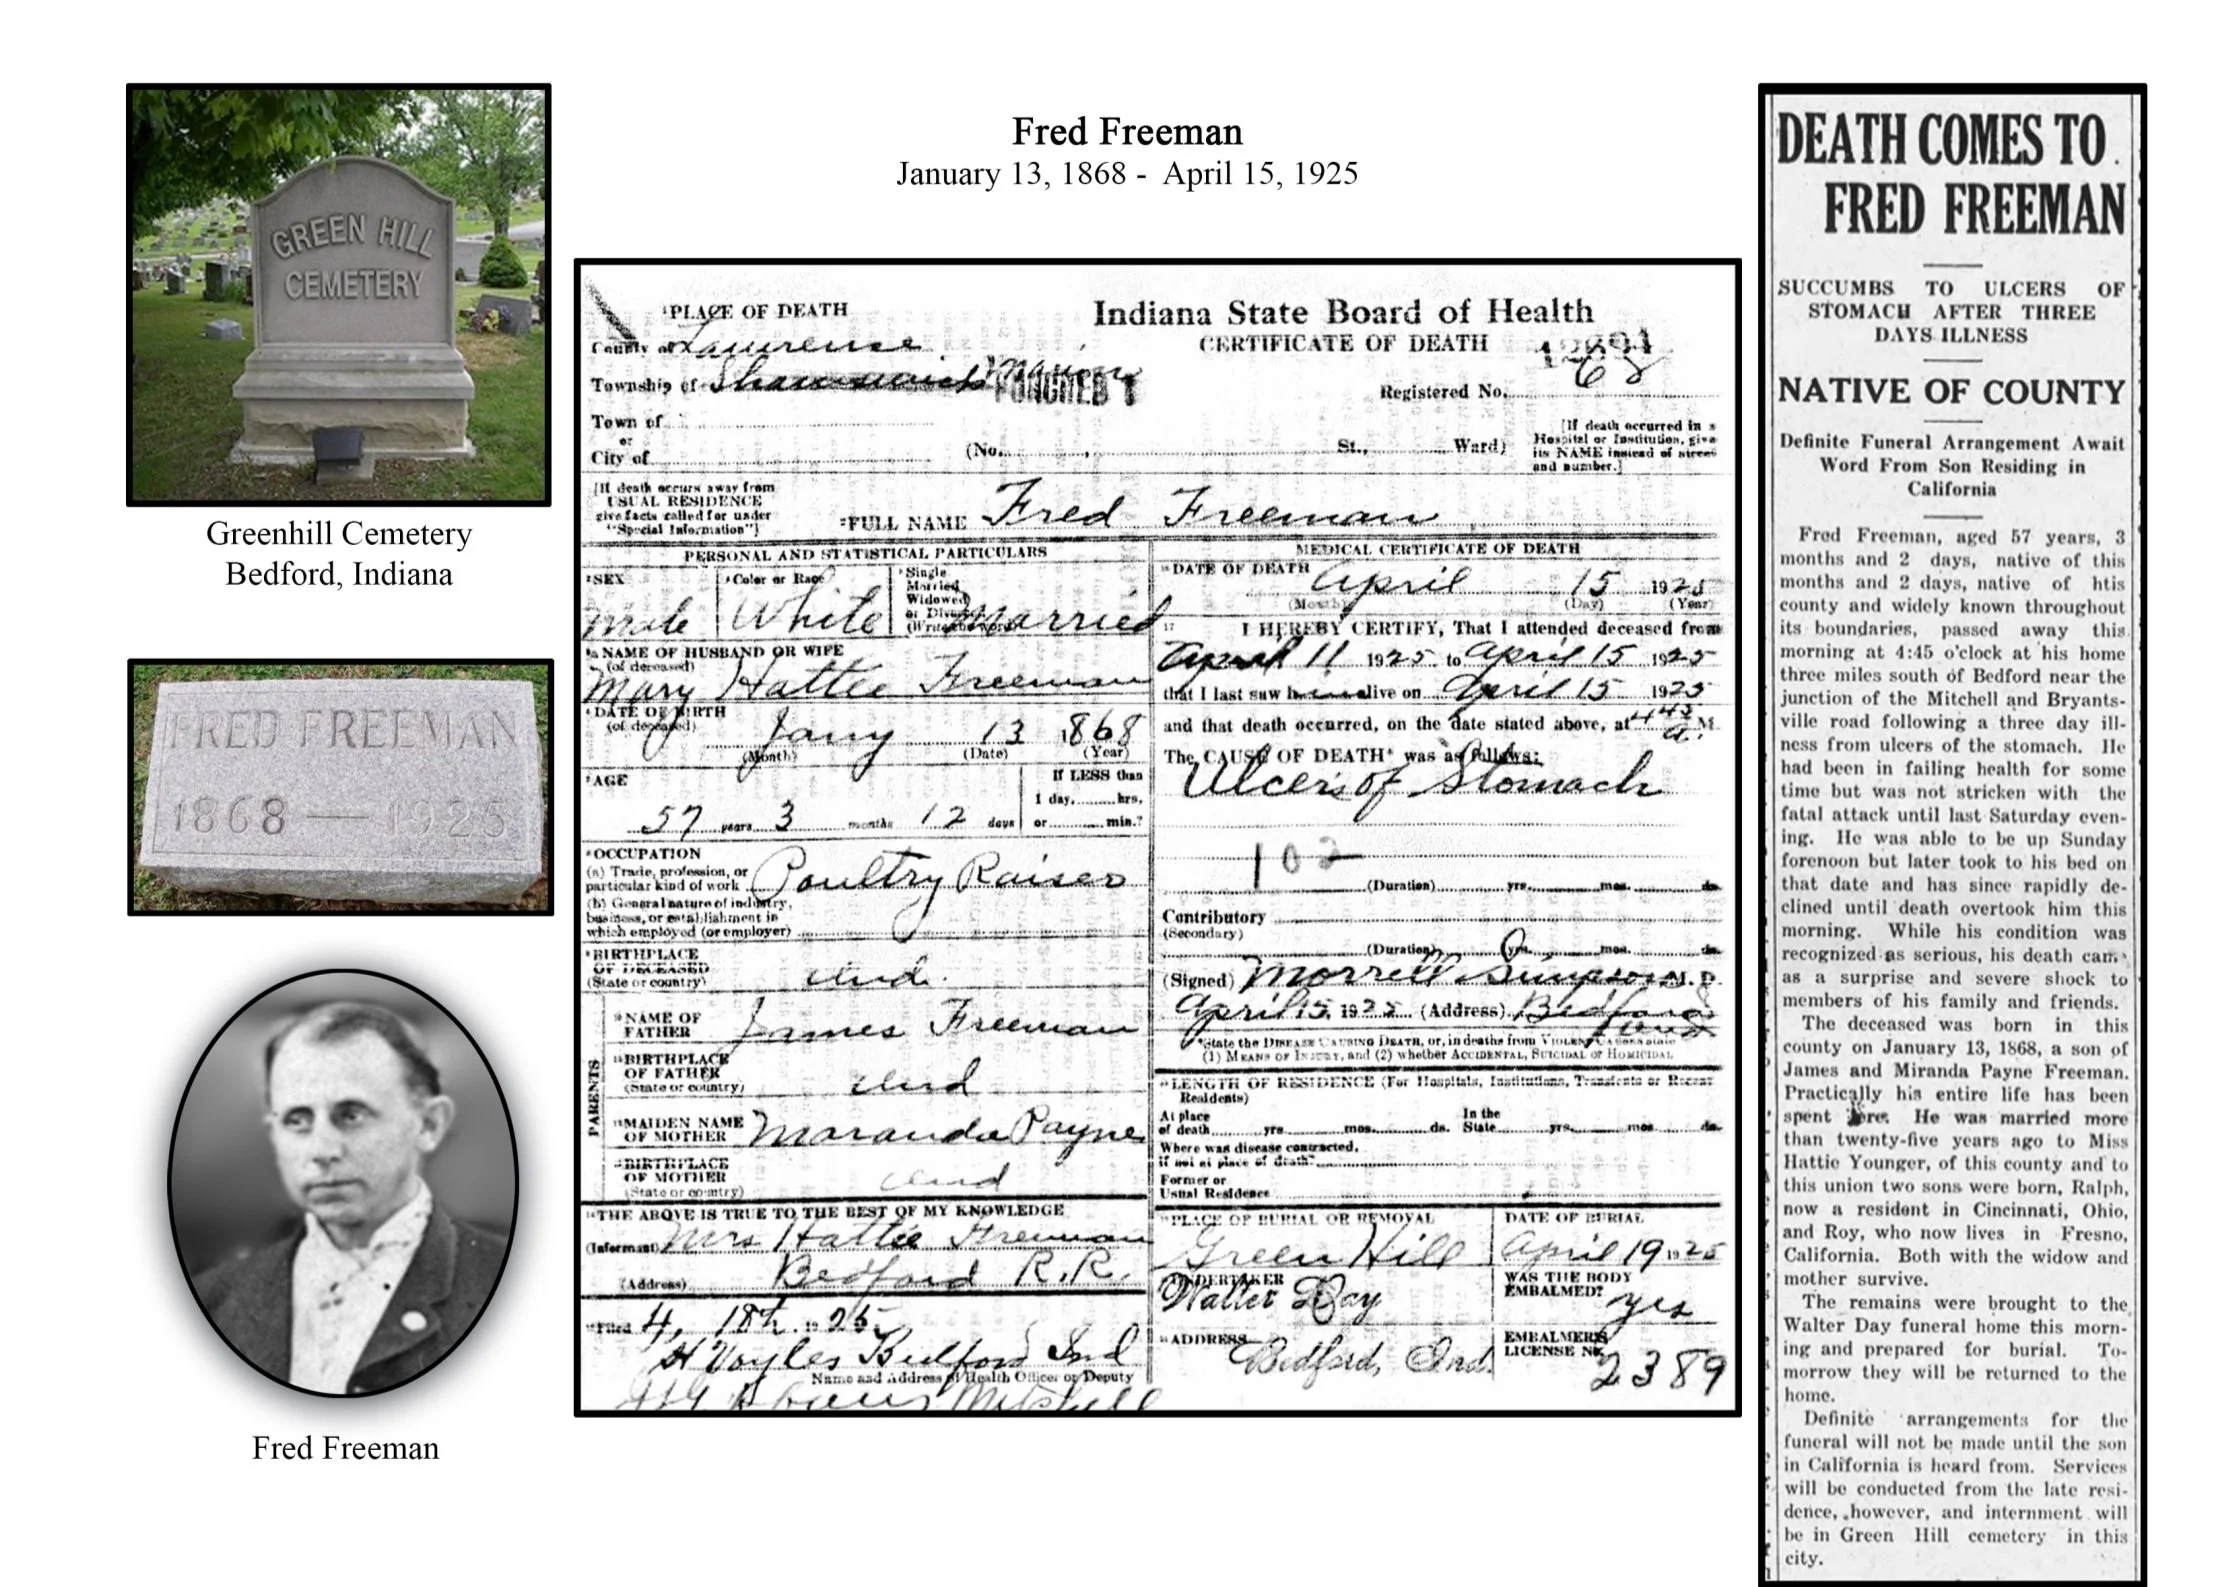 GREEN HILL
CEMETERY
Greenhill Cemetery
Bedford, Indiana
FRED FREEMAN
1868 — 1925
Fred Freeman
Fred Freeman
January 13, 1868 - April 15, 1925
PLACE OF DEATH
County of Lawrence
Township of Marion
Town of
or
City of
Indiana State Board of Health
CERTIFICATE OF DEATH
Registered No. 68
(No. St., Ward)
[If death occurred in a
Hospital or Institution, give
its NAME instead of street
and number.]
[If death occurs away from
USUAL RESIDENCE
give facts called for under
"Special Information"]
FULL NAME Fred Freeman
PERSONAL AND STATISTICAL PARTICULARS
SEX
Male
Color or Race
White
Single
Married
Widowed
or Divorced
(Write the word)
Married
NAME OF HUSBAND OR WIFE
(of deceased)
Mary Hattie Freeman
DATE OF BIRTH
(of deceased)
Jany 13 1868
(Month) (Date) (Year)
AGE
57 years 3 months 12 days
If LESS than
1 day, hrs.
or min.?
OCCUPATION
(a) Trade, profession, or
particular kind of work Poultry Raiser
(b) General nature of industry,
business, or establishment in
which employed (or employer)
BIRTHPLACE
OF DECEASED
(State or country) Ind.
PARENTS
NAME OF
FATHER James Freeman
BIRTHPLACE
OF FATHER
(State or country) Ind
MAIDEN NAME
OF MOTHER Maranda Payne
BIRTHPLACE
OF MOTHER
(State or country) Ind
THE ABOVE IS TRUE TO THE BEST OF MY KNOWLEDGE
(Informant) Mrs Hattie Freeman
(Address) Bedford R.R.
Filed 4, 18th. 1925
H Voyles Bedford Ind
Name and Address of Health Officer or Deputy
Mitchell
MEDICAL CERTIFICATE OF DEATH
DATE OF DEATH
April 15 1925
(Month) (Day) (Year)
17 I HEREBY CERTIFY, That I attended deceased from
April 11 1925 to April 15 1925
that I last saw him alive on April 15 1925
and that death occurred, on the date stated above, at 4:45 a.M.
The CAUSE OF DEATH* was as follows:
Ulcers of Stomach
(Duration) yrs. mos. ds.
Contributory
(Secondary)
(Duration) yrs. mos. ds.
(Signed) Morrell Simpson M. D.
April 15, 1925 (Address) Bedford
*State the DISEASE CAUSING DEATH, or, in deaths from VIOLENT CAUSES state
(1) MEANS OF INJURY, and (2) whether ACCIDENTAL, SUICIDAL or HOMICIDAL
LENGTH OF RESIDENCE (For Hospitals, Institutions, Transients or Recent
Residents)
At place
of death yrs. mos. ds.
In the
State yrs. mos. ds.
Where was disease contracted,
if not at place of death?
Former or
Usual Residence
PLACE OF BURIAL OR REMOVAL
Green Hill
DATE OF BURIAL
April 19 1925
UNDERTAKER
Walter Day
WAS THE BODY
EMBALMED?
yes
ADDRESS
Bedford, Ind.
EMBALMERS
LICENSE No.
2389
DEATH COMES TO
FRED FREEMAN
SUCCUMBS TO ULCERS OF
STOMACH AFTER THREE
DAYS ILLNESS
NATIVE OF COUNTY
Definite Funeral Arrangement Await
Word From Son Residing in
California
Fred Freeman, aged 57 years, 3
months and 2 days, native of this
months and 2 days, native of htis
county and widely known throughout
its boundaries, passed away this
morning at 4:45 o'clock at his home
three miles south of Bedford near the
junction of the Mitchell and Bryants-
ville road following a three day ill-
ness from ulcers of the stomach. He
had been in failing health for some
time but was not stricken with the
fatal attack until last Saturday even-
ing. He was able to be up Sunday
forenoon but later took to his bed on
that date and has since rapidly de-
clined until death overtook him this
morning. While his condition was
recognized as serious, his death came
as a surprise and severe shock to
members of his family and friends.
The deceased was born in this
county on January 13, 1868, a son of
James and Miranda Payne Freeman.
Practically his entire life has been
spent here. He was married more
than twenty-five years ago to Miss
Hattie Younger, of this county and to
this union two sons were born, Ralph,
now a resident in Cincinnati, Ohio,
and Roy, who now lives in Fresno,
California. Both with the widow and
mother survive.
The remains were brought to the
Walter Day funeral home this morn-
ing and prepared for burial. To-
morrow they will be returned to the
home.
Definite arrangements for the
funeral will not be made until the son
in California is heard from. Services
will be conducted from the late resi-
dence, however, and internment will
be in Green Hill cemetery in this
city.